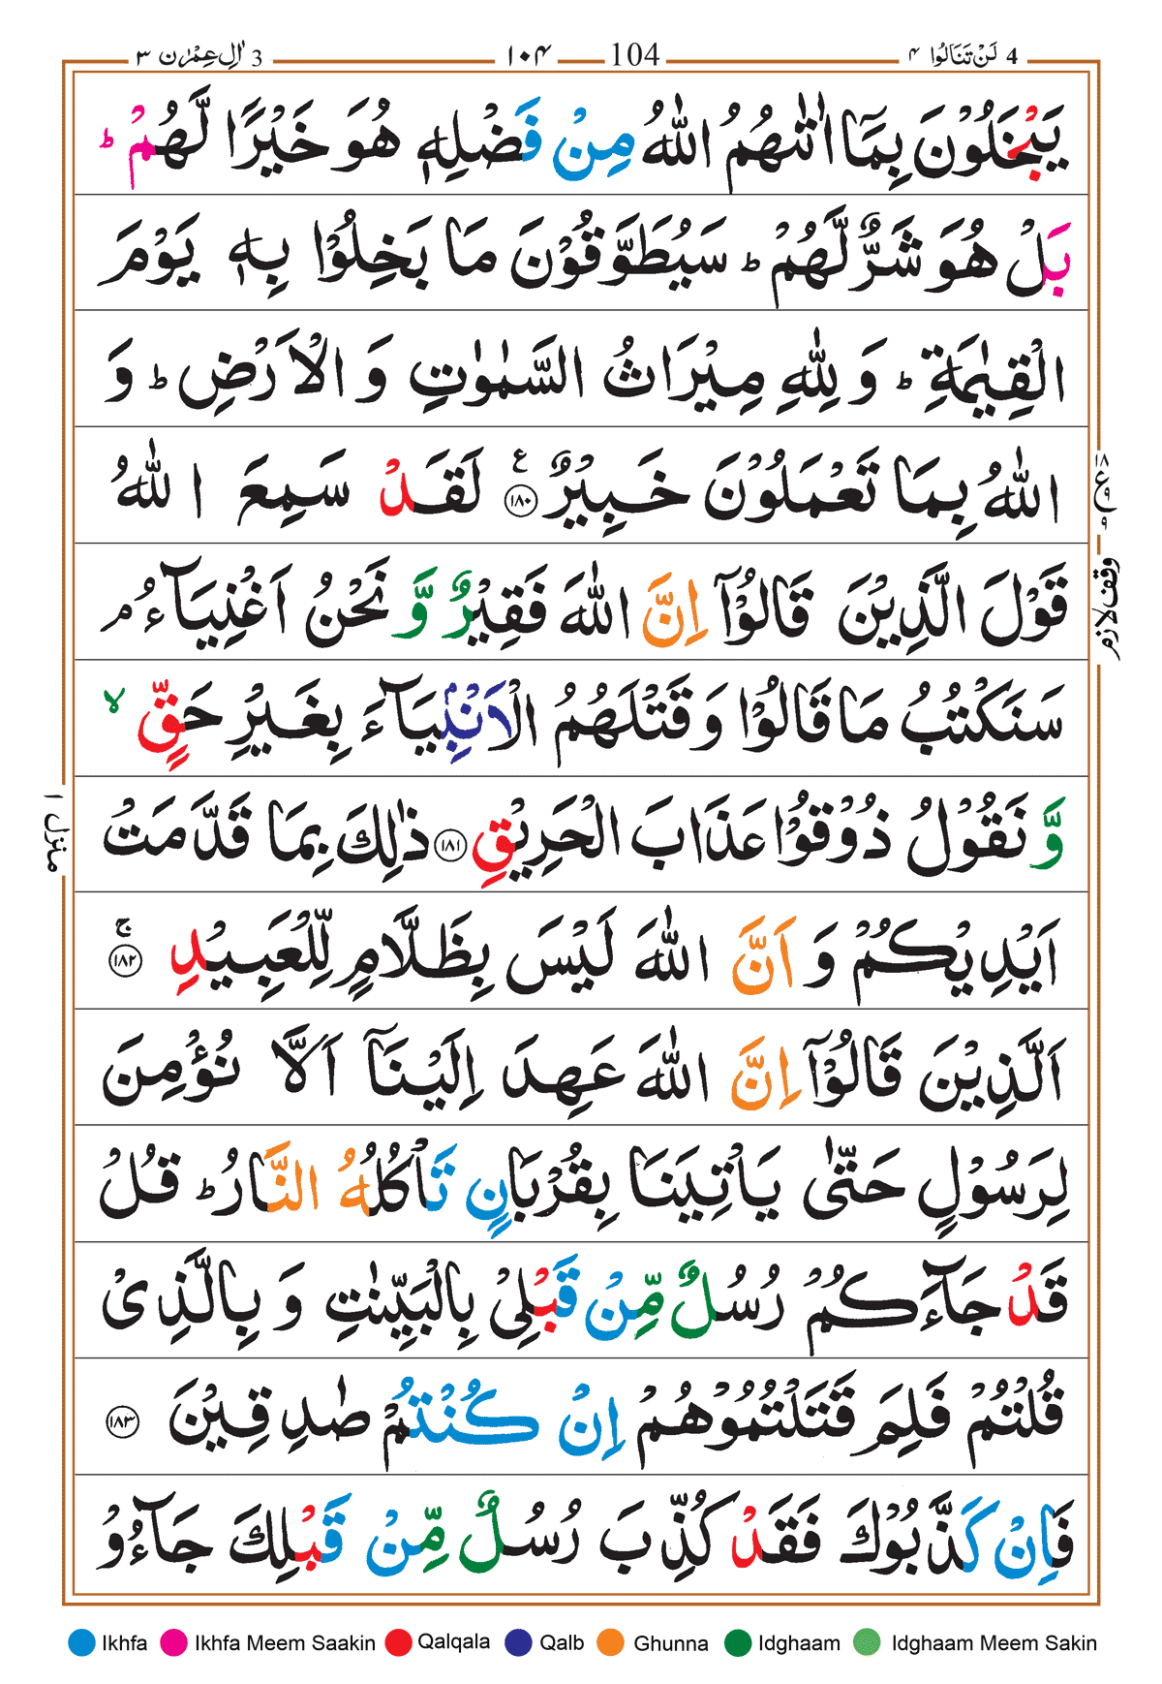 4 لَنْ تَنَالُوا ۴ 104 ۱۰۴ 3 اٰلِ عِمْرٰن ۳
يَبْخَلُوْنَ بِمَاۤ اٰتٰىهُمُ اللّٰهُ مِنْ فَضْلِهٖ هُوَ خَيْرًا لَّهُمْ ؕ
بَلْ هُوَ شَرٌّ لَّهُمْ ؕ سَيُطَوَّقُوْنَ مَا بَخِلُوْا بِهٖ يَوْمَ
الْقِيٰمَةِ ؕ وَ لِلّٰهِ مِيْرَاثُ السَّمٰوٰتِ وَ الْاَرْضِ ؕ وَ
اللّٰهُ بِمَا تَعْمَلُوْنَ خَبِيْرٌ ۧ ﴿۱۸۰﴾ لَقَدْ سَمِعَ اللّٰهُ
قَوْلَ الَّذِيْنَ قَالُوْۤا اِنَّ اللّٰهَ فَقِيْرٌ وَّ نَحْنُ اَغْنِيَآءُ ۘ
سَنَكْتُبُ مَا قَالُوْا وَ قَتْلَهُمُ الْاَنْۢبِيَآءَ بِغَيْرِ حَقٍّ ۙ
وَّ نَقُوْلُ ذُوْقُوْا عَذَابَ الْحَرِيْقِ ﴿۱۸۱﴾ ذٰلِكَ بِمَا قَدَّمَتْ
اَيْدِيْكُمْ وَ اَنَّ اللّٰهَ لَيْسَ بِظَلَّامٍ لِّلْعَبِيْدِ ۚ ﴿۱۸۲﴾
اَلَّذِيْنَ قَالُوْۤا اِنَّ اللّٰهَ عَهِدَ اِلَيْنَاۤ اَلَّا نُؤْمِنَ
لِرَسُوْلٍ حَتّٰى يَاْتِيَنَا بِقُرْبَانٍ تَاْكُلُهُ النَّارُ ؕ قُلْ
قَدْ جَآءَكُمْ رُسُلٌ مِّنْ قَبْلِيْ بِالْبَيِّنٰتِ وَ بِالَّذِيْ
قُلْتُمْ فَلِمَ قَتَلْتُمُوْهُمْ اِنْ كُنْتُمْ صٰدِقِيْنَ ﴿۱۸۳﴾
فَاِنْ كَذَّبُوْكَ فَقَدْ كُذِّبَ رُسُلٌ مِّنْ قَبْلِكَ جَآءُوْ
وقف لازم
منزل ۱
Ikhfa Ikhfa Meem Saakin Qalqala Qalb Ghunna Idghaam Idghaam Meem Sakin